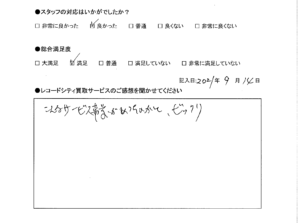 ●スタッフの対応はいかがでしたか?
□ 非常に良かった ☑ 良かった □ 普通 □ 良くない □ 非常に良くない
●総合満足度
□ 大満足 ☑ 満足 □ 普通 □ 満足していない □ 非常に満足していない
記入日:2021年 9 月 14日
●レコードシティ買取サービスのご感想を聞かせてください
こんなサービス業があったのかと、ビックリ